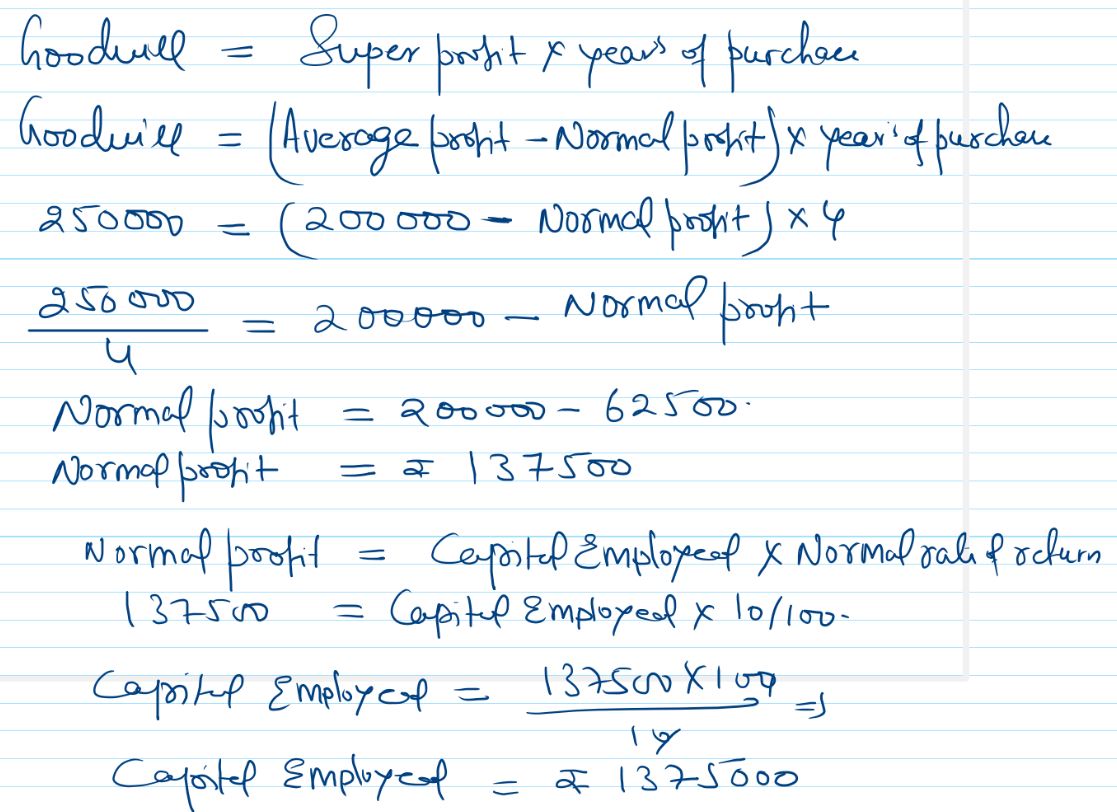 Goodwill = Super profit × years of purchase
Goodwill = (Average profit - Normal profit) × year's of purchase
250000 = (200000 - Normal profit) × 4
250000/4 = 200000 - Normal profit
Normal profit = 200000 - 62500.
Normal profit = ₹ 137500
Normal profit = Capital Employed × Normal rate of return
137500 = Capital Employed × 10/100.
Capital Employed = 137500×100/10 ⇒
Capital Employed = ₹ 1375000